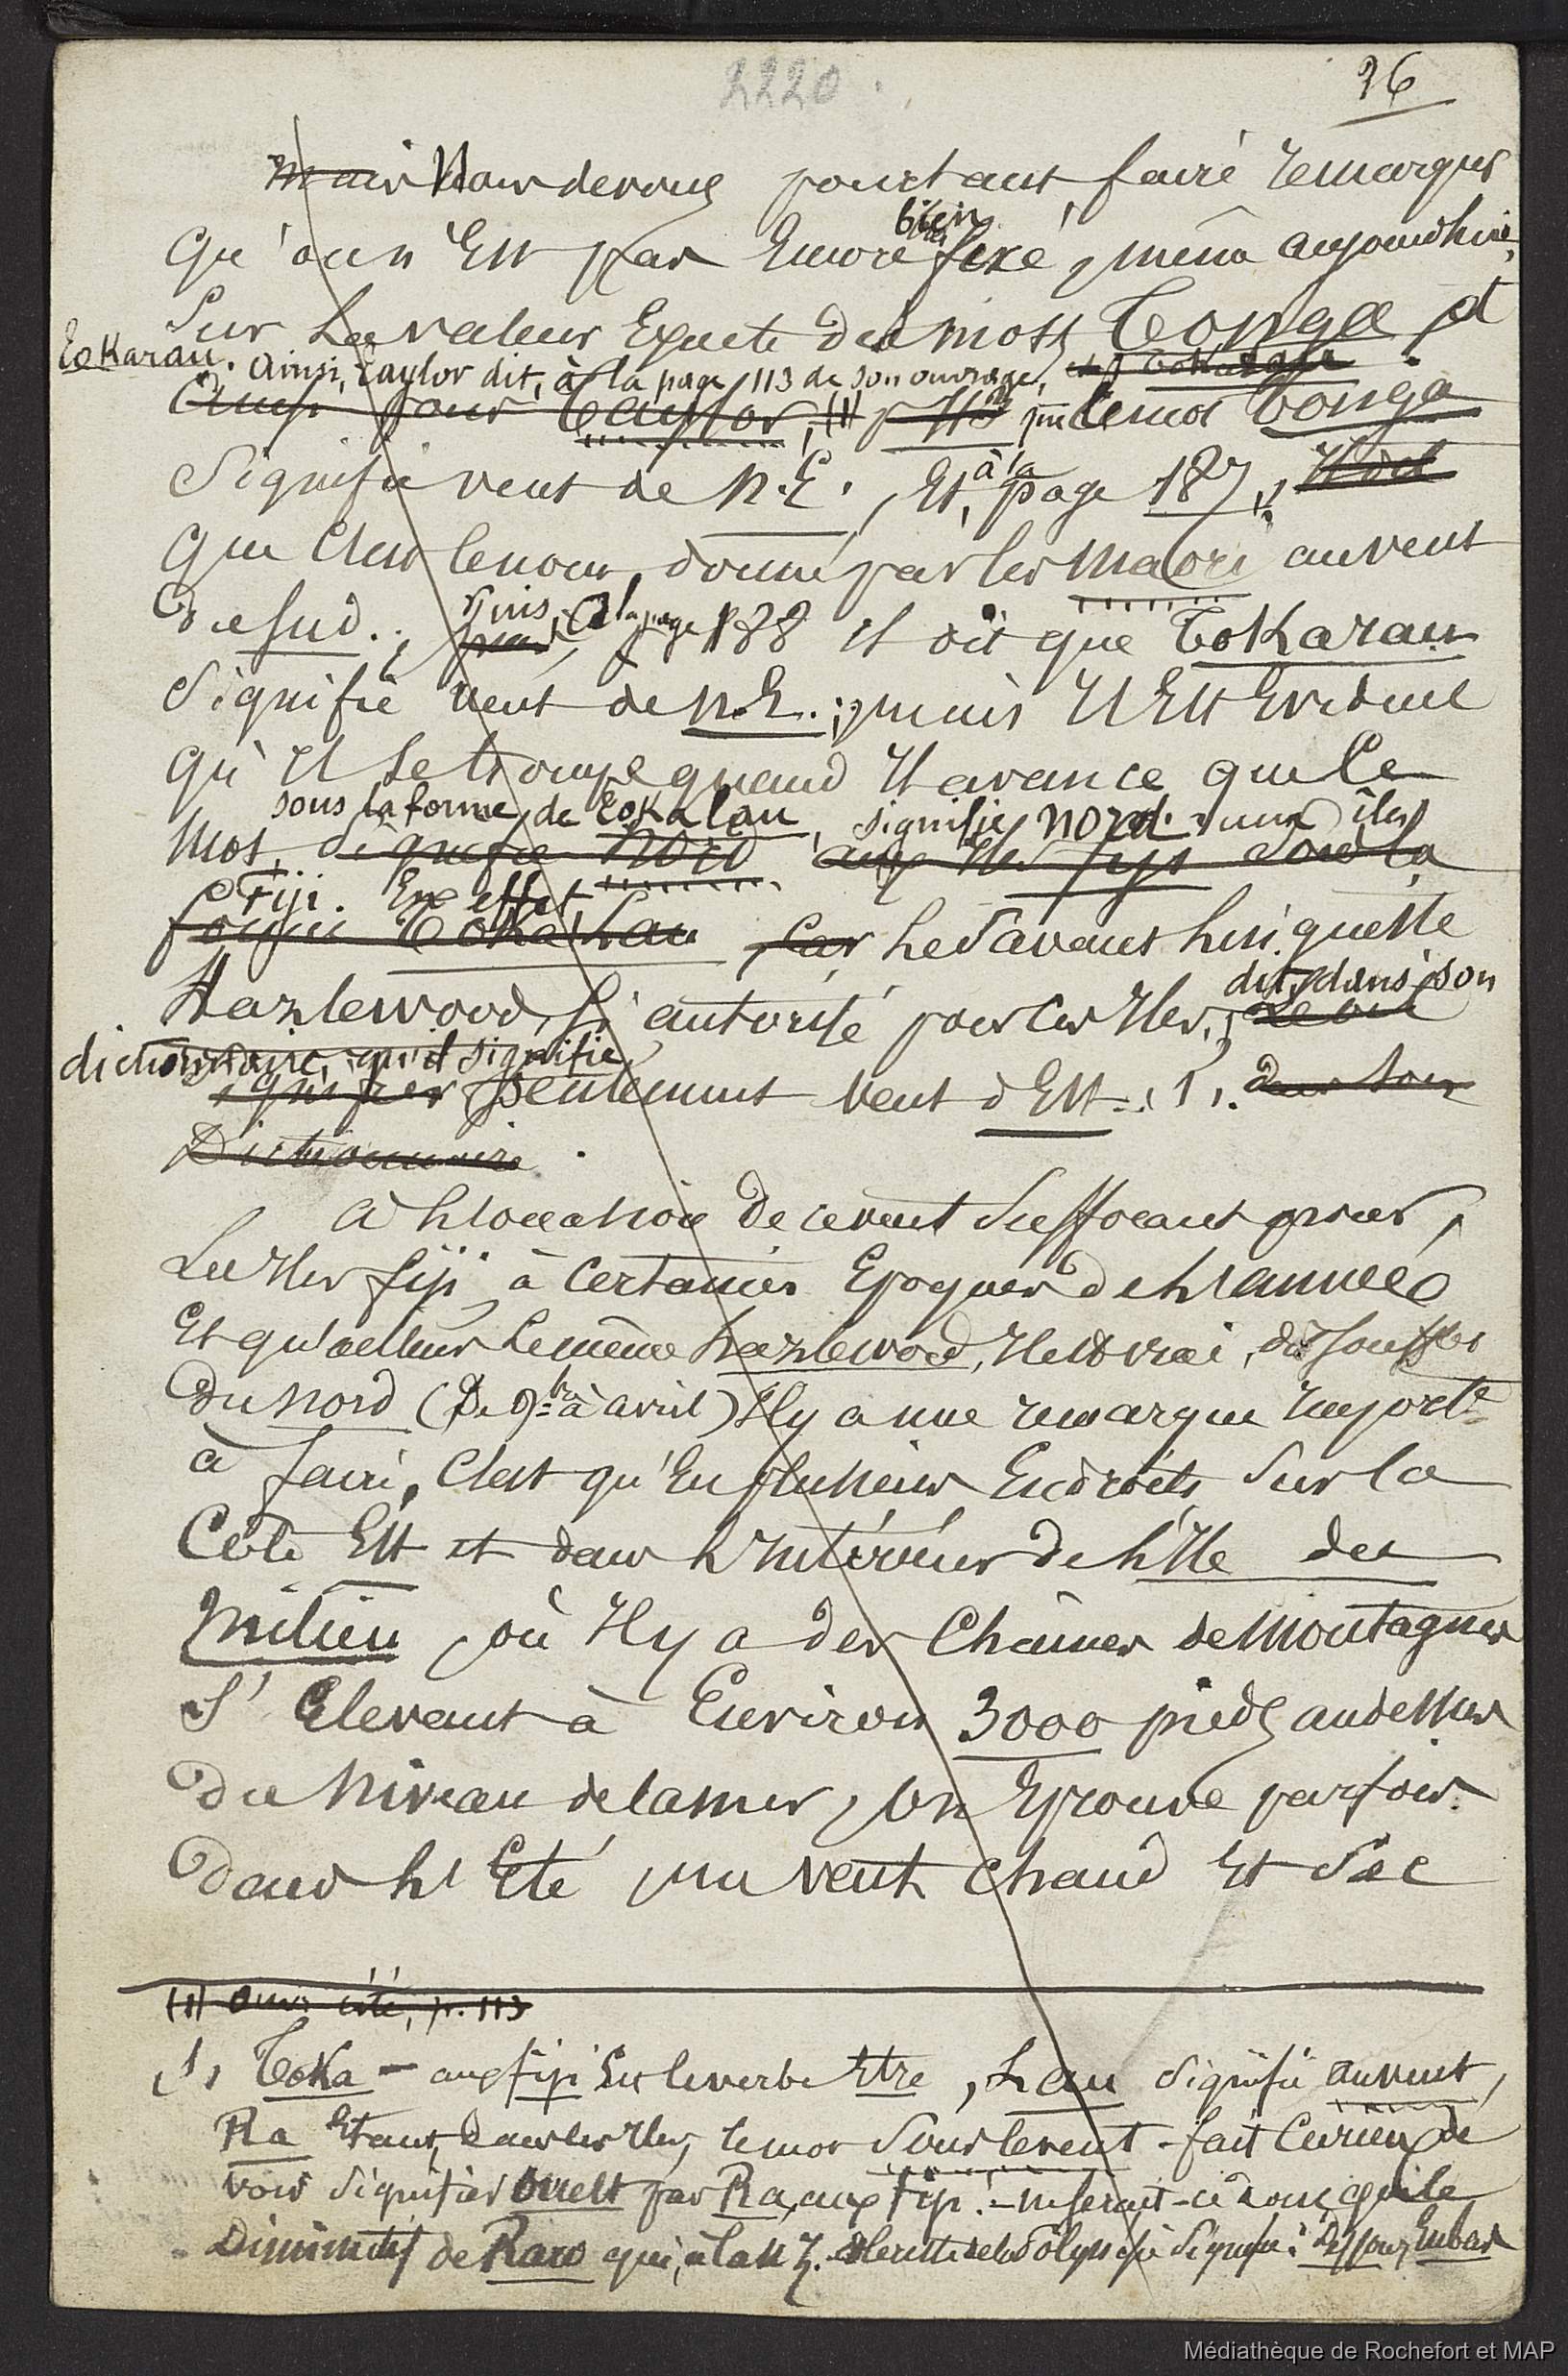 2220.
26
mais Nous devons pourtant faire remarquer
bien
qu'on n'est pas encore fixé, même aujourd'hui,
sur la valeur exacte des mots Tonga et
Tokarau. Ainsi, Taylor dit, à la page 113 de son ouvrage, et Tokarau
Ainsi pour Taylor, (1) p 113 que le mot Tonga
signifie vent de N.E., et, à la page 187,
que c'est le nom donné par les Maori au vent
du sud.; puis, à la page 188 il dit que Tokarau
signifie vent de N.E.; mais il est évident
qu'il se trompe quand il avance que ce
sous la forme de Tokalau, signifie nord aux îles
mot, signifie nord aux îles Fiji sous la
Fiji. En effet,
forme Tokalau car le savant linguiste
Hazlewood, si autorisé pour ces îles, dit, dans son
dictionnaire, qu'il signifie
signifier seulement vent d'Est. (1). dans son
Dictionnaire.
A l'occasion de ce vent suffocant pour
les îles Fiji à certaines époques de l'année
et qu'ailleurs le même Hazlewood, il est vrai, dit souffler
du nord (De 9bre à avril) il y a une remarque importte
à faire, c'est qu'en plusieurs endroits sur la
Côte Est et dans l'intérieur de l'île du
milieu, où il y a des chaines de montagnes
s'élevant à environ 3000 pieds au dessus
du niveau de la mer, on éprouve parfois
dans l'été, un vent chaud et sec
(1) Ouvr. cité, p. 113
(1) Toka - aux Fiji est le verbe être, Lau signifie au vent,
Ra étant, dans les îles, le mot sous le vent. fait curieux de
voir signifier ouest par Ra, aux Fiji. - ne serait-ce donc que le
Diminutif de Raro qui, à la N Z. et le reste de la Polynésie signifie: dessous, en bas
Médiathèque de Rochefort et MAP